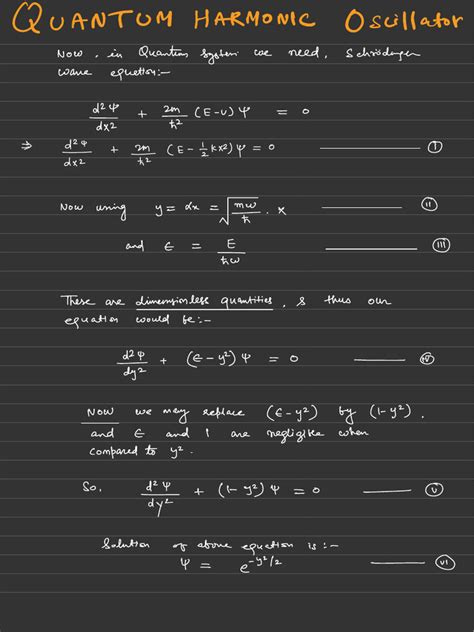 QUANTUM HARMONIC Oscillator
Now, in Quantum system we need, Schrödinger
wave equation:-
d²ψ/dx² + 2m/ħ² (E-U) ψ = 0
⇒ d²ψ/dx² + 2m/ħ² (E - ½kx²) ψ = 0 —— (I)
Now using y = αx = √(mω/ħ) . x —— (II)
and ϵ = E/ħω —— (III)
These are dimensionless quantities, & thus our
equation would be:-
d²ψ/dy² + (ϵ - y²) ψ = 0 —— (IV)
Now we may replace (ϵ-y²) by (1-y²),
and ϵ and 1 are negligible when
compared to y².
So, d²ψ/dy² + (1-y²) ψ = 0 —— (V)
Solution of above equation is:-
ψ = e^(-y²/2) —— (VI)